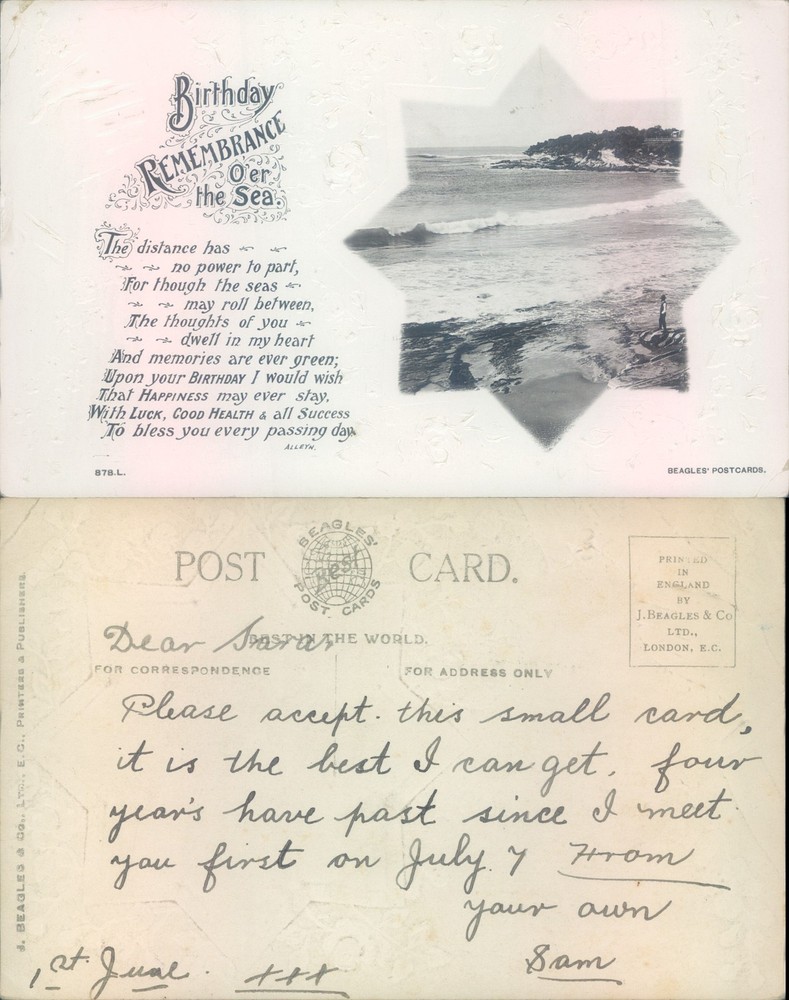 Birthday
REMEMBRANCE
O'er
the Sea.
The distance has
no power to part,
For though the seas
may roll between,
The thoughts of you
dwell in my heart
And memories are ever green;
Upon your BIRTHDAY I would wish
That HAPPINESS may ever stay,
With LUCK, GOOD HEALTH & all Success
To bless you every passing day.
ALLEYN.
878.L.
BEAGLES' POSTCARDS.
POST CARD.
BEAGLES'
Best
POST CARDS
BEST IN THE WORLD.
PRINTED
IN
ENGLAND
BY
J. BEAGLES & Co
LTD.,
LONDON, E.C.
J. BEAGLES & Co., LTD., E.C., PRINTERS & PUBLISHERS.
FOR CORRESPONDENCE
FOR ADDRESS ONLY
Dear Sarar
Please accept. this small card,
it is the best I can get. four
year's have past since I meet
you first on July. 7 From
your own
Sam
1st. June. +++